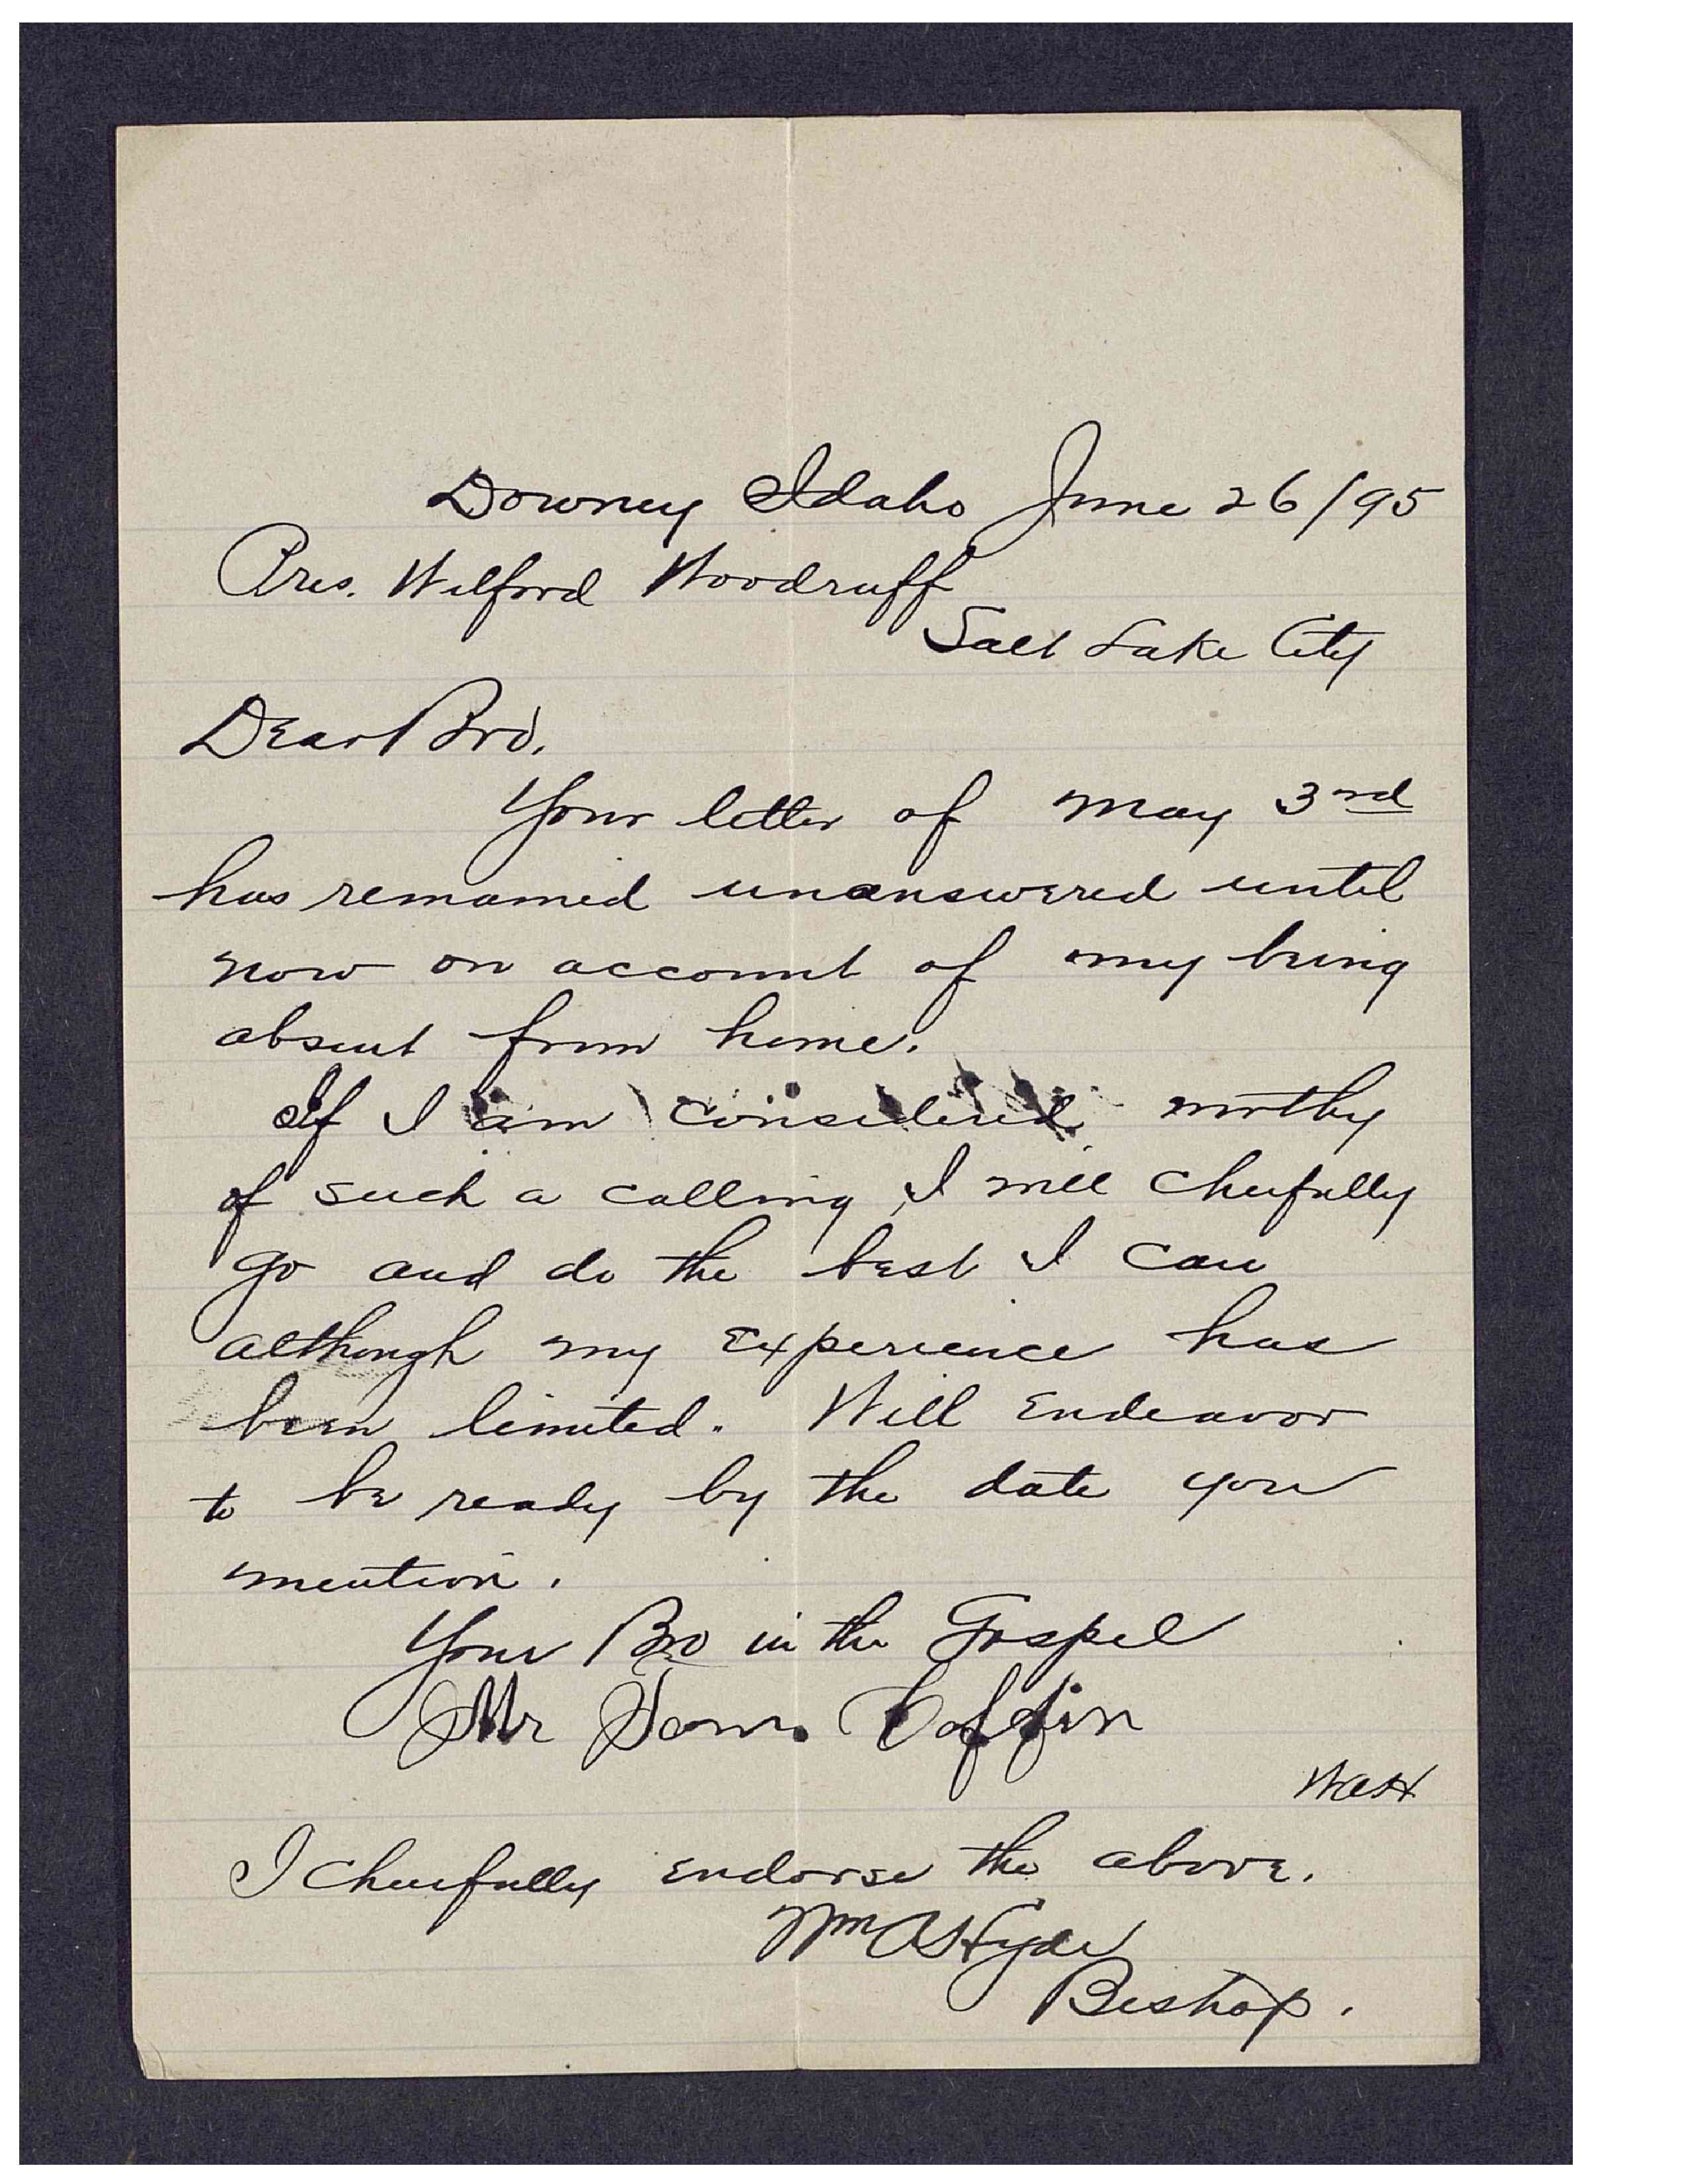 Downey Idaho June 26/95
Pres. Wilford Woodruff
Salt Lake City
Dear Bro.
Your letter of May 3rd
has remained unanswered until
now on account of my being
absent from home.
If I am considered worthy
of such a calling, I will cheerfully
go and do the best I can
although my experience has
been limited. Will Endeavor
to be ready by the date you
mention.
Your Bro in the Gospel
Mr Coffin
WAH
I cheerfully endorse the above.
Wm A Hyde
Bishop.